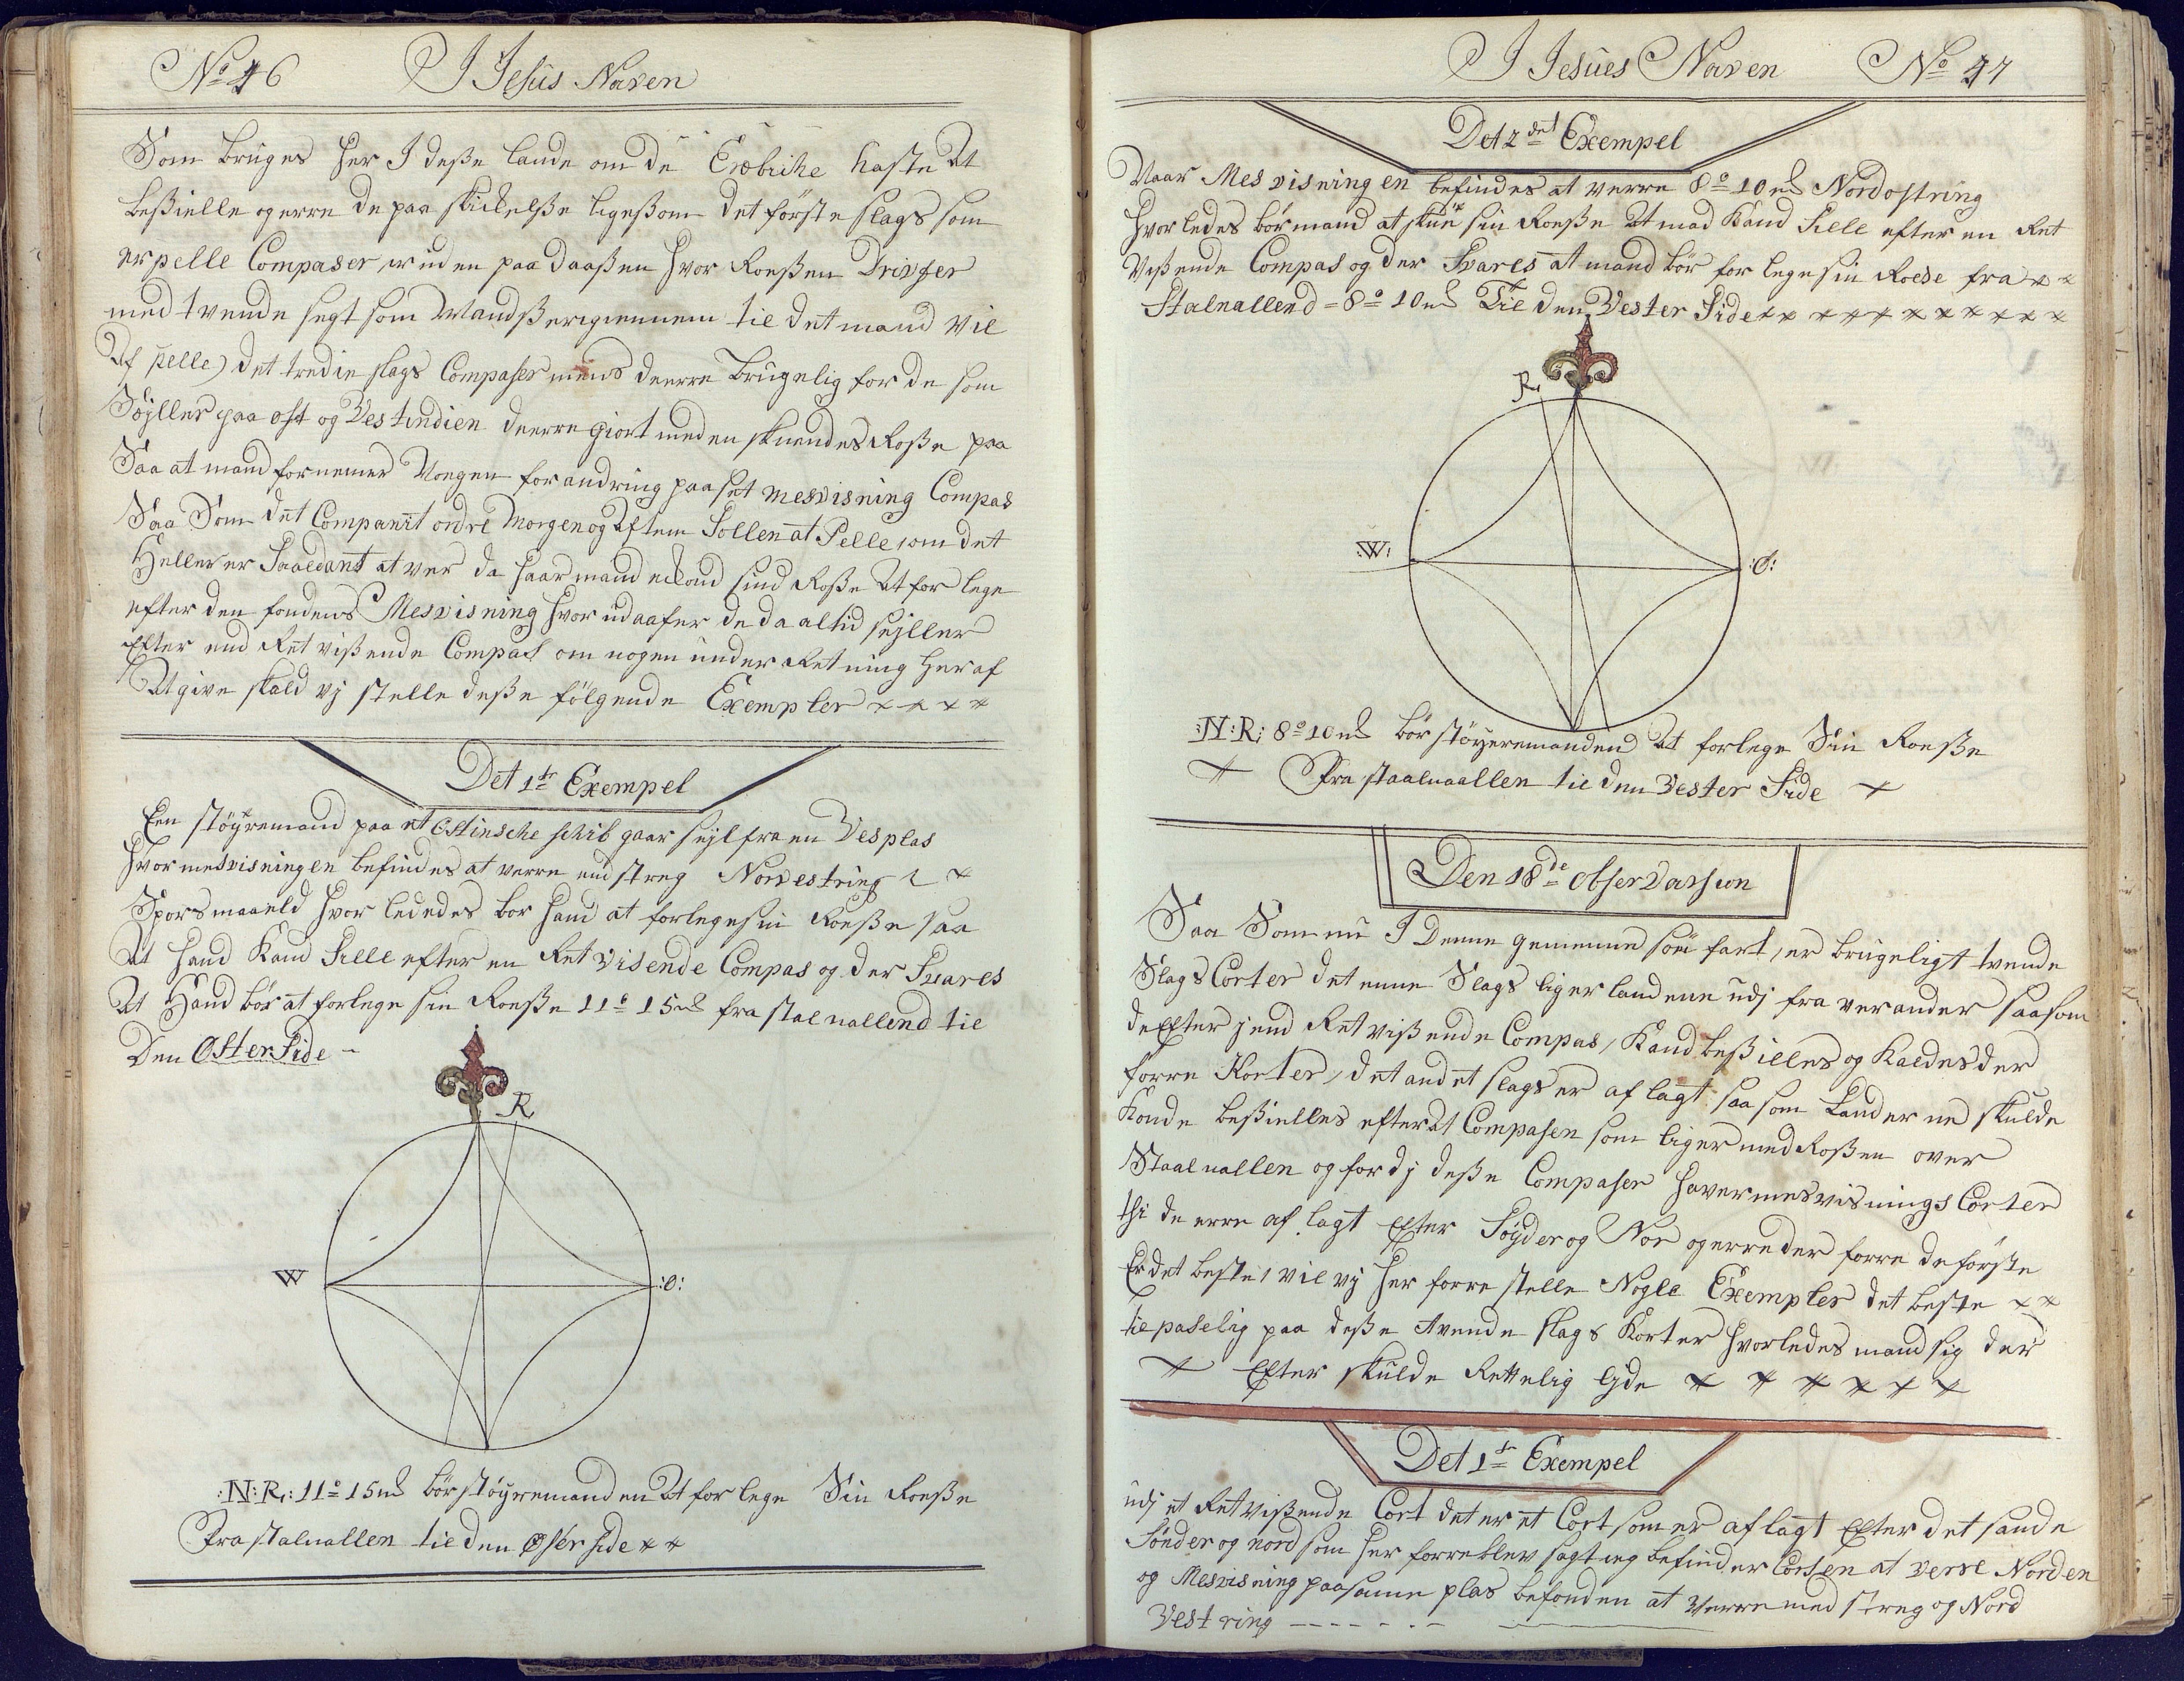 No 46 I Jesüs Naven
Som brüges her I deße lande om de Erobriche haste at
beßielle og erre de paa skickelße ligeßom det förste slags som
er pelle Compaser uden paa daaßen hvor Roeßen Drivfer
med tvende segt som Mandß er igiennem til det mand vil
Af pelle) det tredie slags Compaser mens de erre brügelig for de som
Söjller paa ost og Vestindien de erre giort med en skuendes Roße paa
Saa at mand fornemer Nongen forandring paa set mesvisning Compas
Saa Som det Companit ordre Morgen og Aften Sollen at Pelle som det
Heller er Saaledant at ver da haar mand sind Roße At forlege
efter den fondens Mesvisning hvor üdaafer de da altid sejller
Efter end Ret vißende Compas om nogen ünder Retning her af
At give skald vj stelle deße fölgende Exempler
Det 1te Exempel
Een stöyremand paa et Ostinsche schib gaar sejl fra en Ves plas
hvor mesvisningen befindes at verre end streg Norvestring
Sporsmaaeld hvor lededes bor hand at forlege sin Roeße saa
At hand Kand Sille efter en Ret Visende Compas og der Svares
At Hand bör at forlege sin Roeße 11° 15 ml fra stalnallend til
Den Oster Side
R
W :O:
:N:R: 11° 15 ml bör stöyremanden At forlege Sin Roeße
Fra stalnallen til den Oster side
I Jesües Naven No 47
Det 2det Exempel
Naar Mesvisningen befindes at verre 8° 10 ml Nordostring
hvorledes bör mand at skue sin Roeße At mad Kand Sille efter en Ret
Vißende Compas og der Svares at mand bör for lege sin Roese fra
Stalnallend = 8° 10 ml Til den Vester Side
R.
:W: :O:
:N:R: 8° 10 ml bör stöyeremanden At forlege Sin Roeße
Fra staalnaallen til den Vester Side
Den 18de observassion
Saa Som nü I Denne gemeene söe fart, er brügeligt tvende
Slags Corter det enne Slags ligger landene üdj fra verander saasom
de Efter jend Ret vißende Compas, Kand beßilles og Kaldes der
forre Korter, det andet slags er af lagt saa som Landerne skülde
Konde beßielles efter At Compasen som liger med Roßen over
Staalnallen og for dj deße Compaser haver mesvisnings Corter
thi de erre af lagt Efter Söyder og Nor og erre der forre de förste
Er det beste, vil vj her forre stelle Nogle Exempler det beste
til paselig paa deße tvende slags Korter hvorledes mand sig der
Efter skülde Rettelig
Det 1te Exempel
üdj et Ret vißende Cort det er et Cort som er aflagt Efter det sande
Sönder og nord som her forre blev sagt jeg befinder Corsen at verre Norden
og Mesvisning paa samme plas befonden at Verre med streg og Nord
Vestring